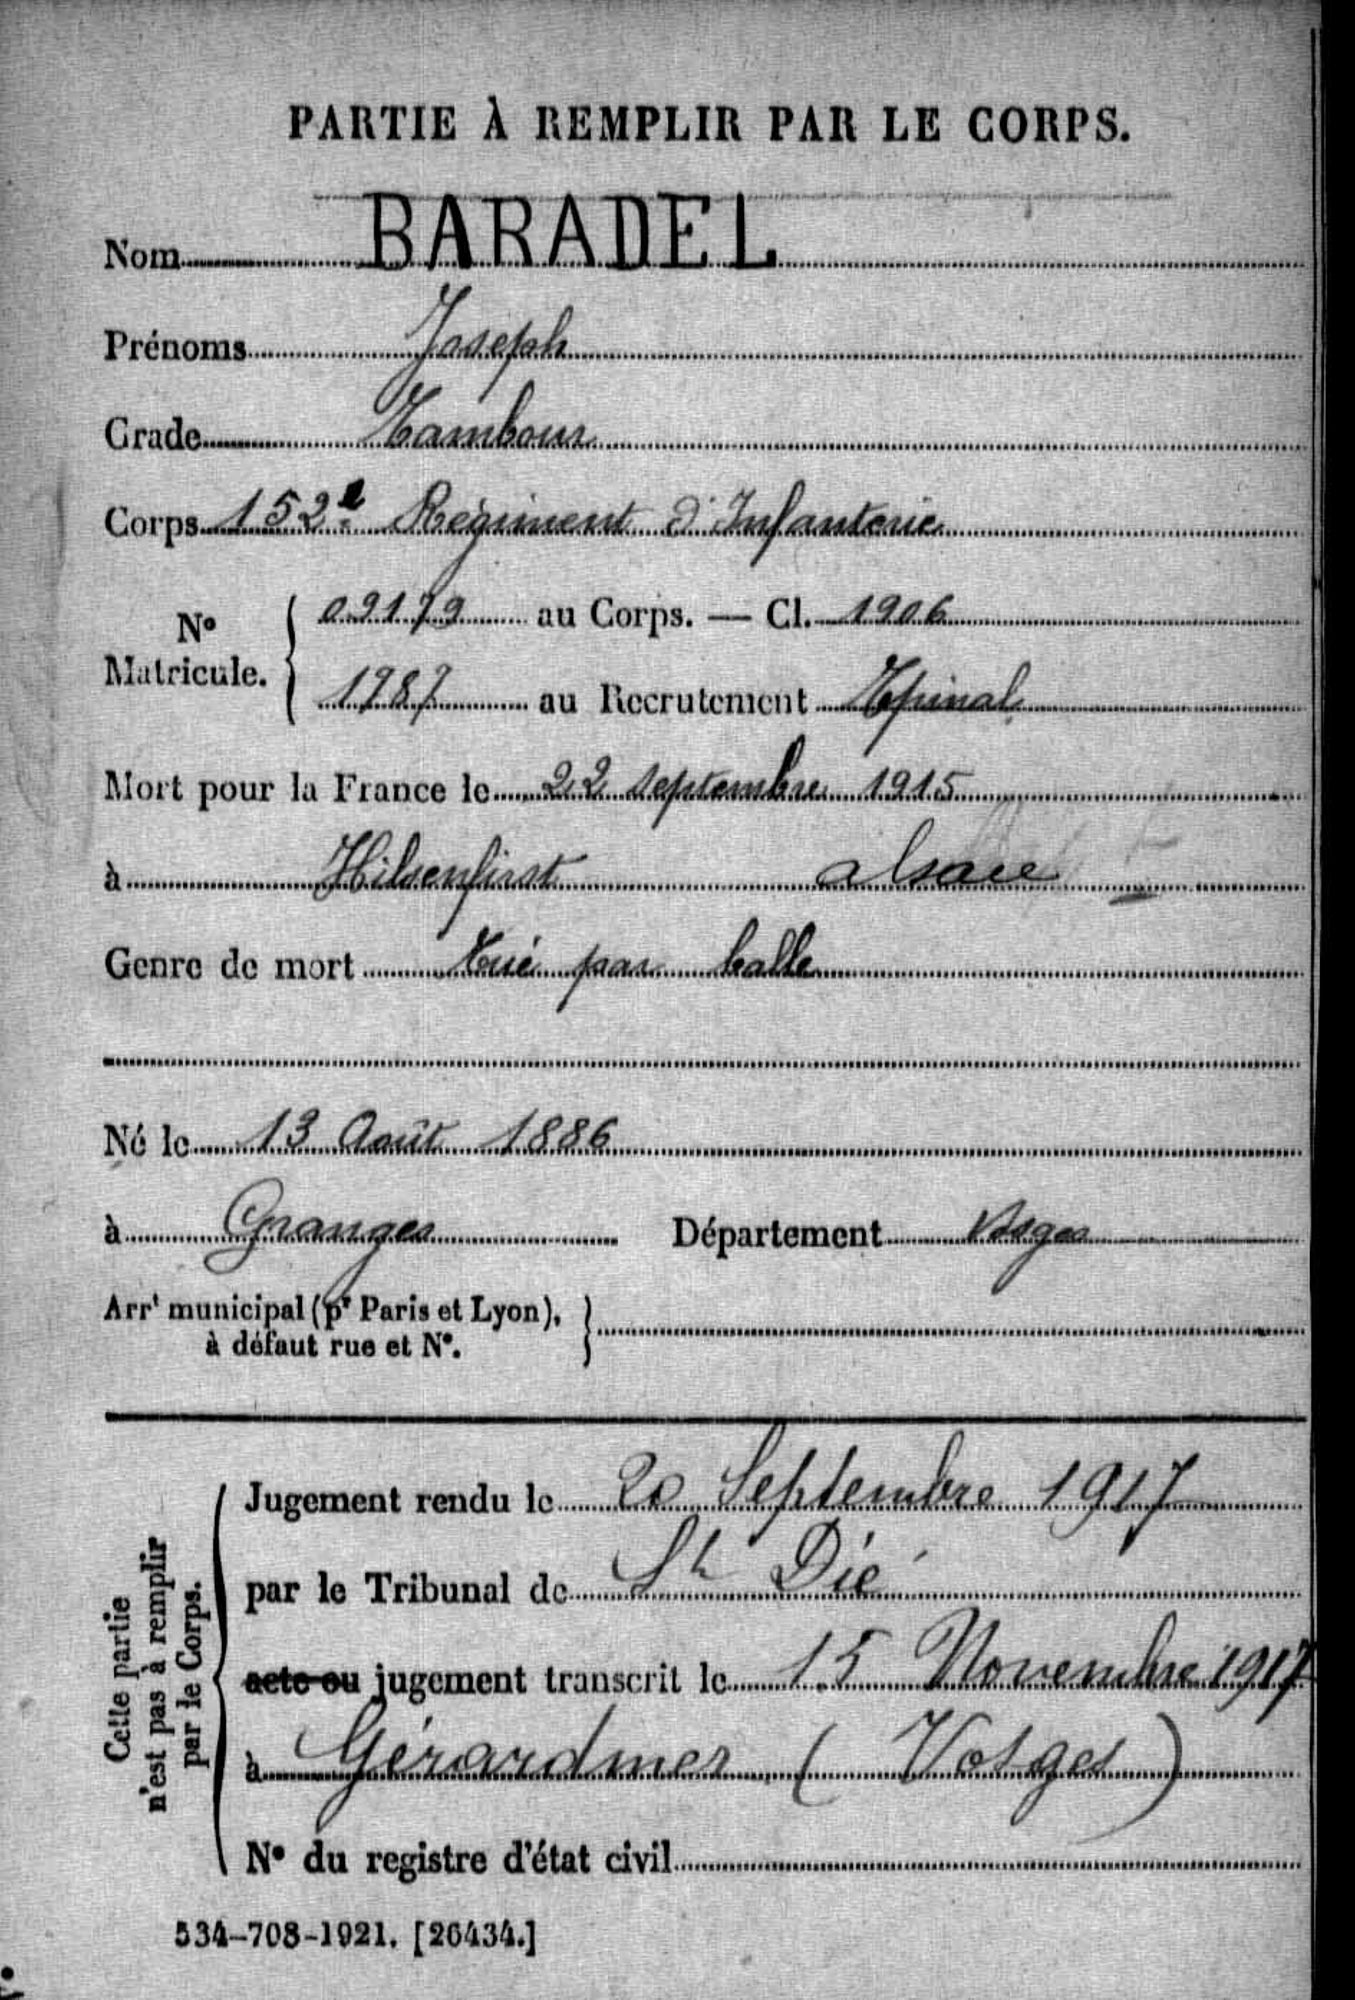 PARTIE À REMPLIR PAR LE CORPS.
Nom BARADEL
Prénoms Joseph
Grade Tambour
Corps 152e Régiment d'Infanterie
No Matricule. { 09179 au Corps. — Cl. 1906
1787 au Recrutement Epinal
Mort pour la France le 22 septembre 1915
à Hilsenfirst alsace
Genre de mort tué par balle
Né le 13 Août 1886
à Granges Département Vosges
Arrt municipal (pr Paris et Lyon), à défaut rue et No. }
Cette partie n'est pas à remplir par le Corps.
Jugement rendu le 20 Septembre 1917
par le Tribunal de St Dié
acte ou jugement transcrit le 15 Novembre 1917
à Gérardmer (Vosges)
No du registre d'état civil
534-708-1921. [26434.]